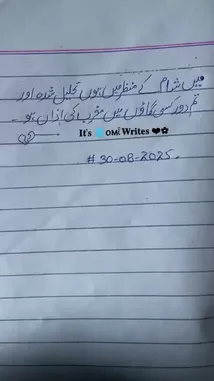 میں شام کے منظر میں ہوں تحلیل شدہ اور
تم دور کسی گاؤں میں مغرب کی اذاں ہو -
It's 🌎OMi Writes ❤✿
# 30-08-2025.